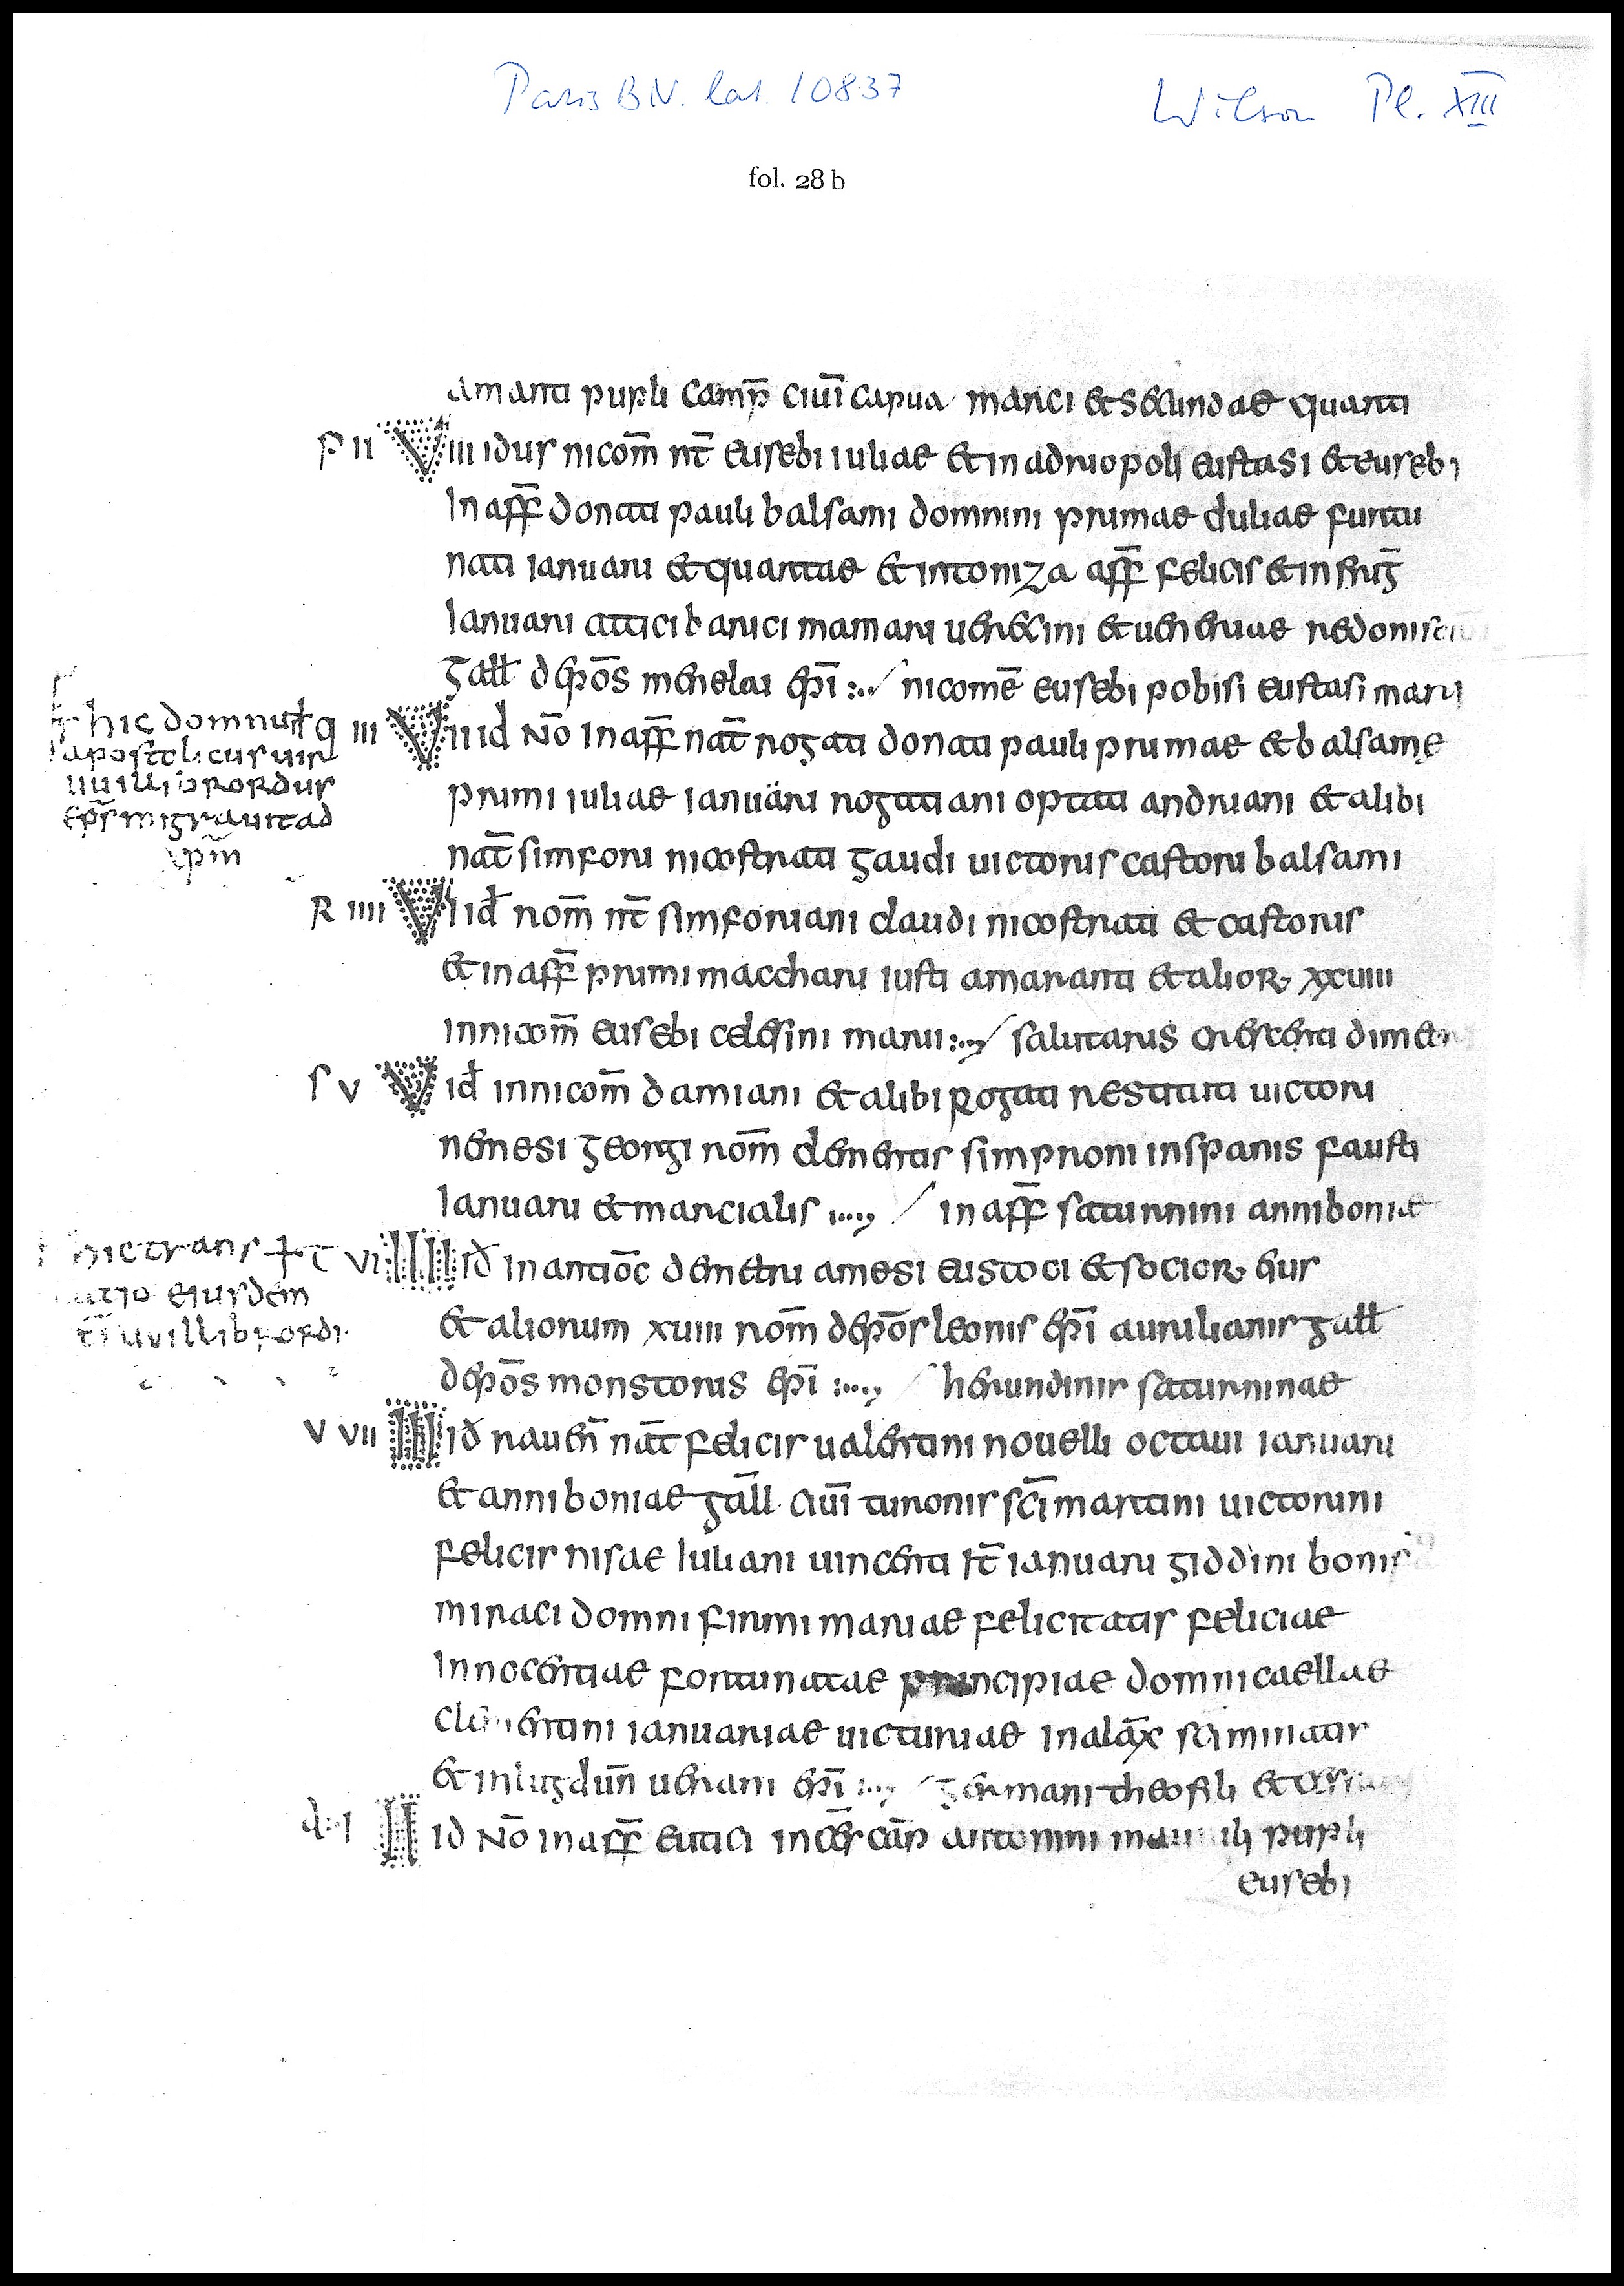 Paris BN. lat. 10837
Wilson Pl. XIII
fol. 28 b
amanti pupli camp̄ ciui̅ capua marci et secundae quarti
p ii Viii idus nicom̄ nt̄ eusebi iuliae et in adriopoli eustasi et eusebi
In aff̄ donati pauli balsami domnini primae duliae furtu
nati ianuari et quartae et in toniza aff̄ felicis et in frig̅
Ianuari attici barici mamari uerecini et uereruae
gall̄ depōs merelai ep̄i :., nicomē eusebi pobisi eustasi mari
q iii Vii id nō In aff̄ nat̄ rogati donati pauli primae et balsame
hic domnus
apostolicus uir
uuillibrordus
ep̄s migrauit ad
xpm̄
primi iuliae ianuari rogatiani optati andriani et alibi
nat̄ simfori nicostrati gaudi uictoris castori balsami
R iiii Vi id rom̄ nt̄ simforiani claudi nicostrati et castoris
et in aff̄ primi macchari iusti amaranti et alior xxuiiii
in nicom̄ eusebi celesini marui :., salutaris crescenti
s v V id in nicom̄ damiani et alibi rogati restituti uictori
nemesi georgi rom̄ clementis simproni in spanis fausti
Ianuari et marcialis :..., in aff̄ saturnini anniboniae
t vi IIII id in antiōc demetri amesi eustoci et socior eius
hic trans
latio eiusdem
sc̄i uuillibrordi
et aliorum xuiiii rom̄ depōs leonis ep̄i aurilianis gall̄
depōs monstoris ep̄i :..., herundinis saturninae
v vii III id rauen̄ nat̄ felicis ualentini nouelli octaui ianuari
et anniboniae gall̄ ciui̅ turonis sc̄i martini uictorini
felicis nisae iuliani uincenti st̄ ianuari giddini
minaci domni firmi mariae felicitatis feliciae
Innocentiae fortunatae principiae domnicaellae
clementini ianuariae uicturiae in alax̄ sci minatis
et in lugdun̄ uerani ep̄i :..., germani theofili et
II id nō in aff̄ eutici in ces̄ cāp antonini pupli
eusebi